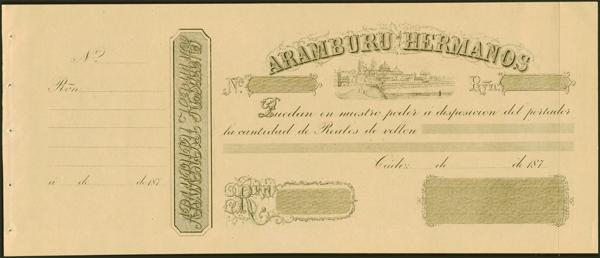 Nº
Rvn.
á de de 187
ARAMBURU HERMANOS
ARAMBURU HERMANOS
Nº. Rvn.
Quedan en nuestro poder a disposicion del portador
la cantidad de Reales de vellon
Cádiz de de 187
Rvn.